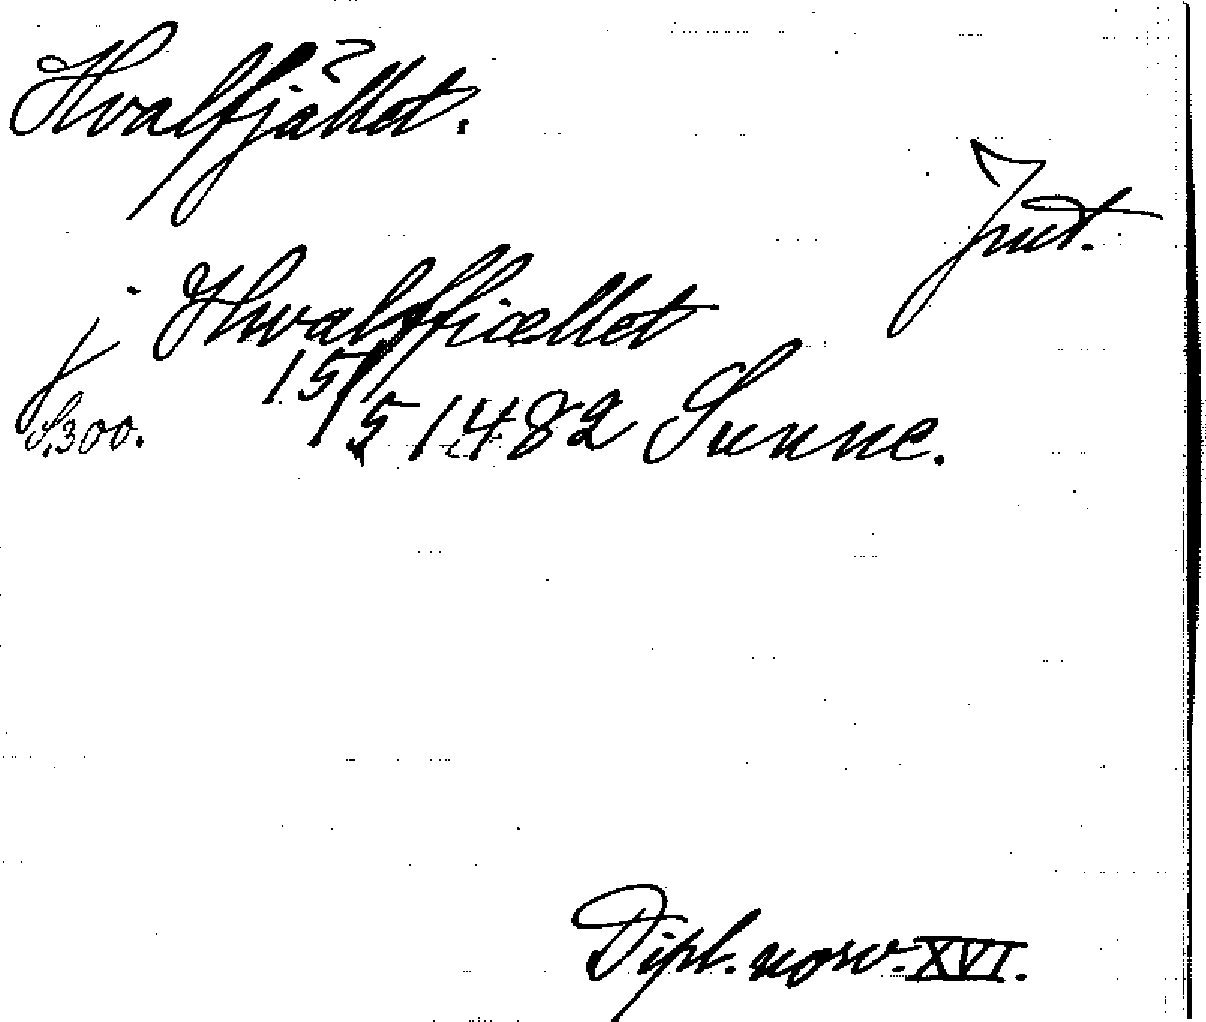 Hvalfjället.
Jmt.
j Hwalffiællet
S.300.
15/5 1482 Sunne.
Dipl. norv. XVI.